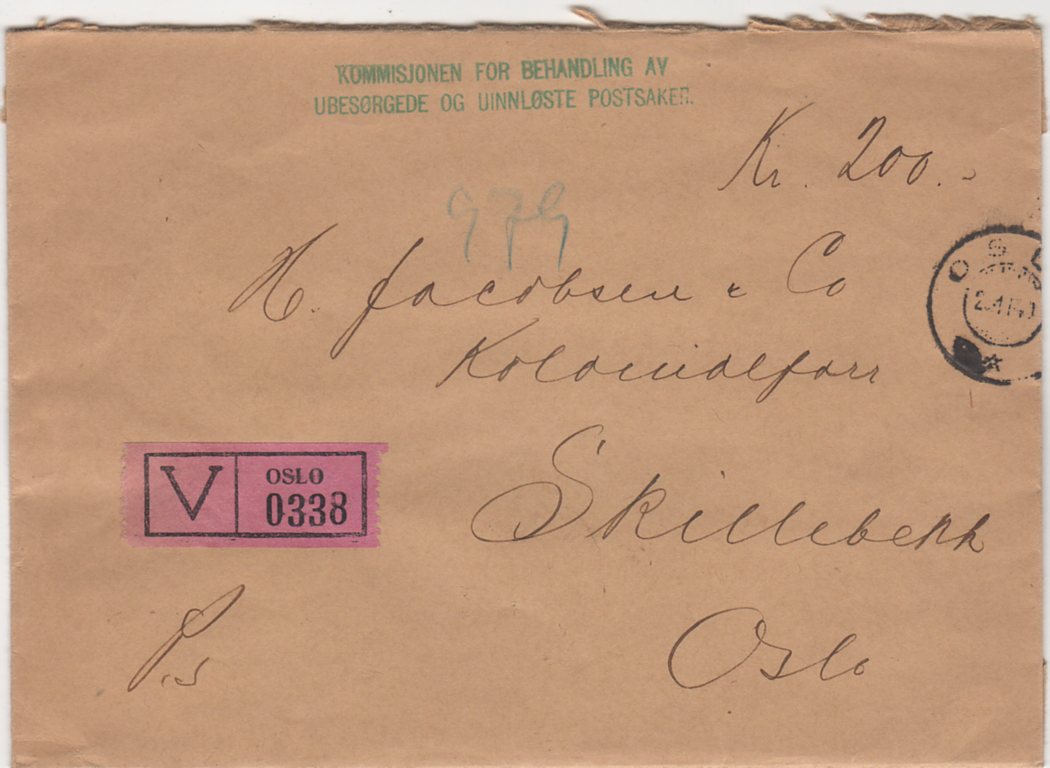 KOMMISJONEN FOR BEHANDLING AV
UBESØRGEDE OG UINNLØSTE POSTSAKER.
Kr. 200.-
979
H. Jacobsen & Co
Kolonialforr
Skillebekk
Oslo
V OSLO
0338
P.s
OSL